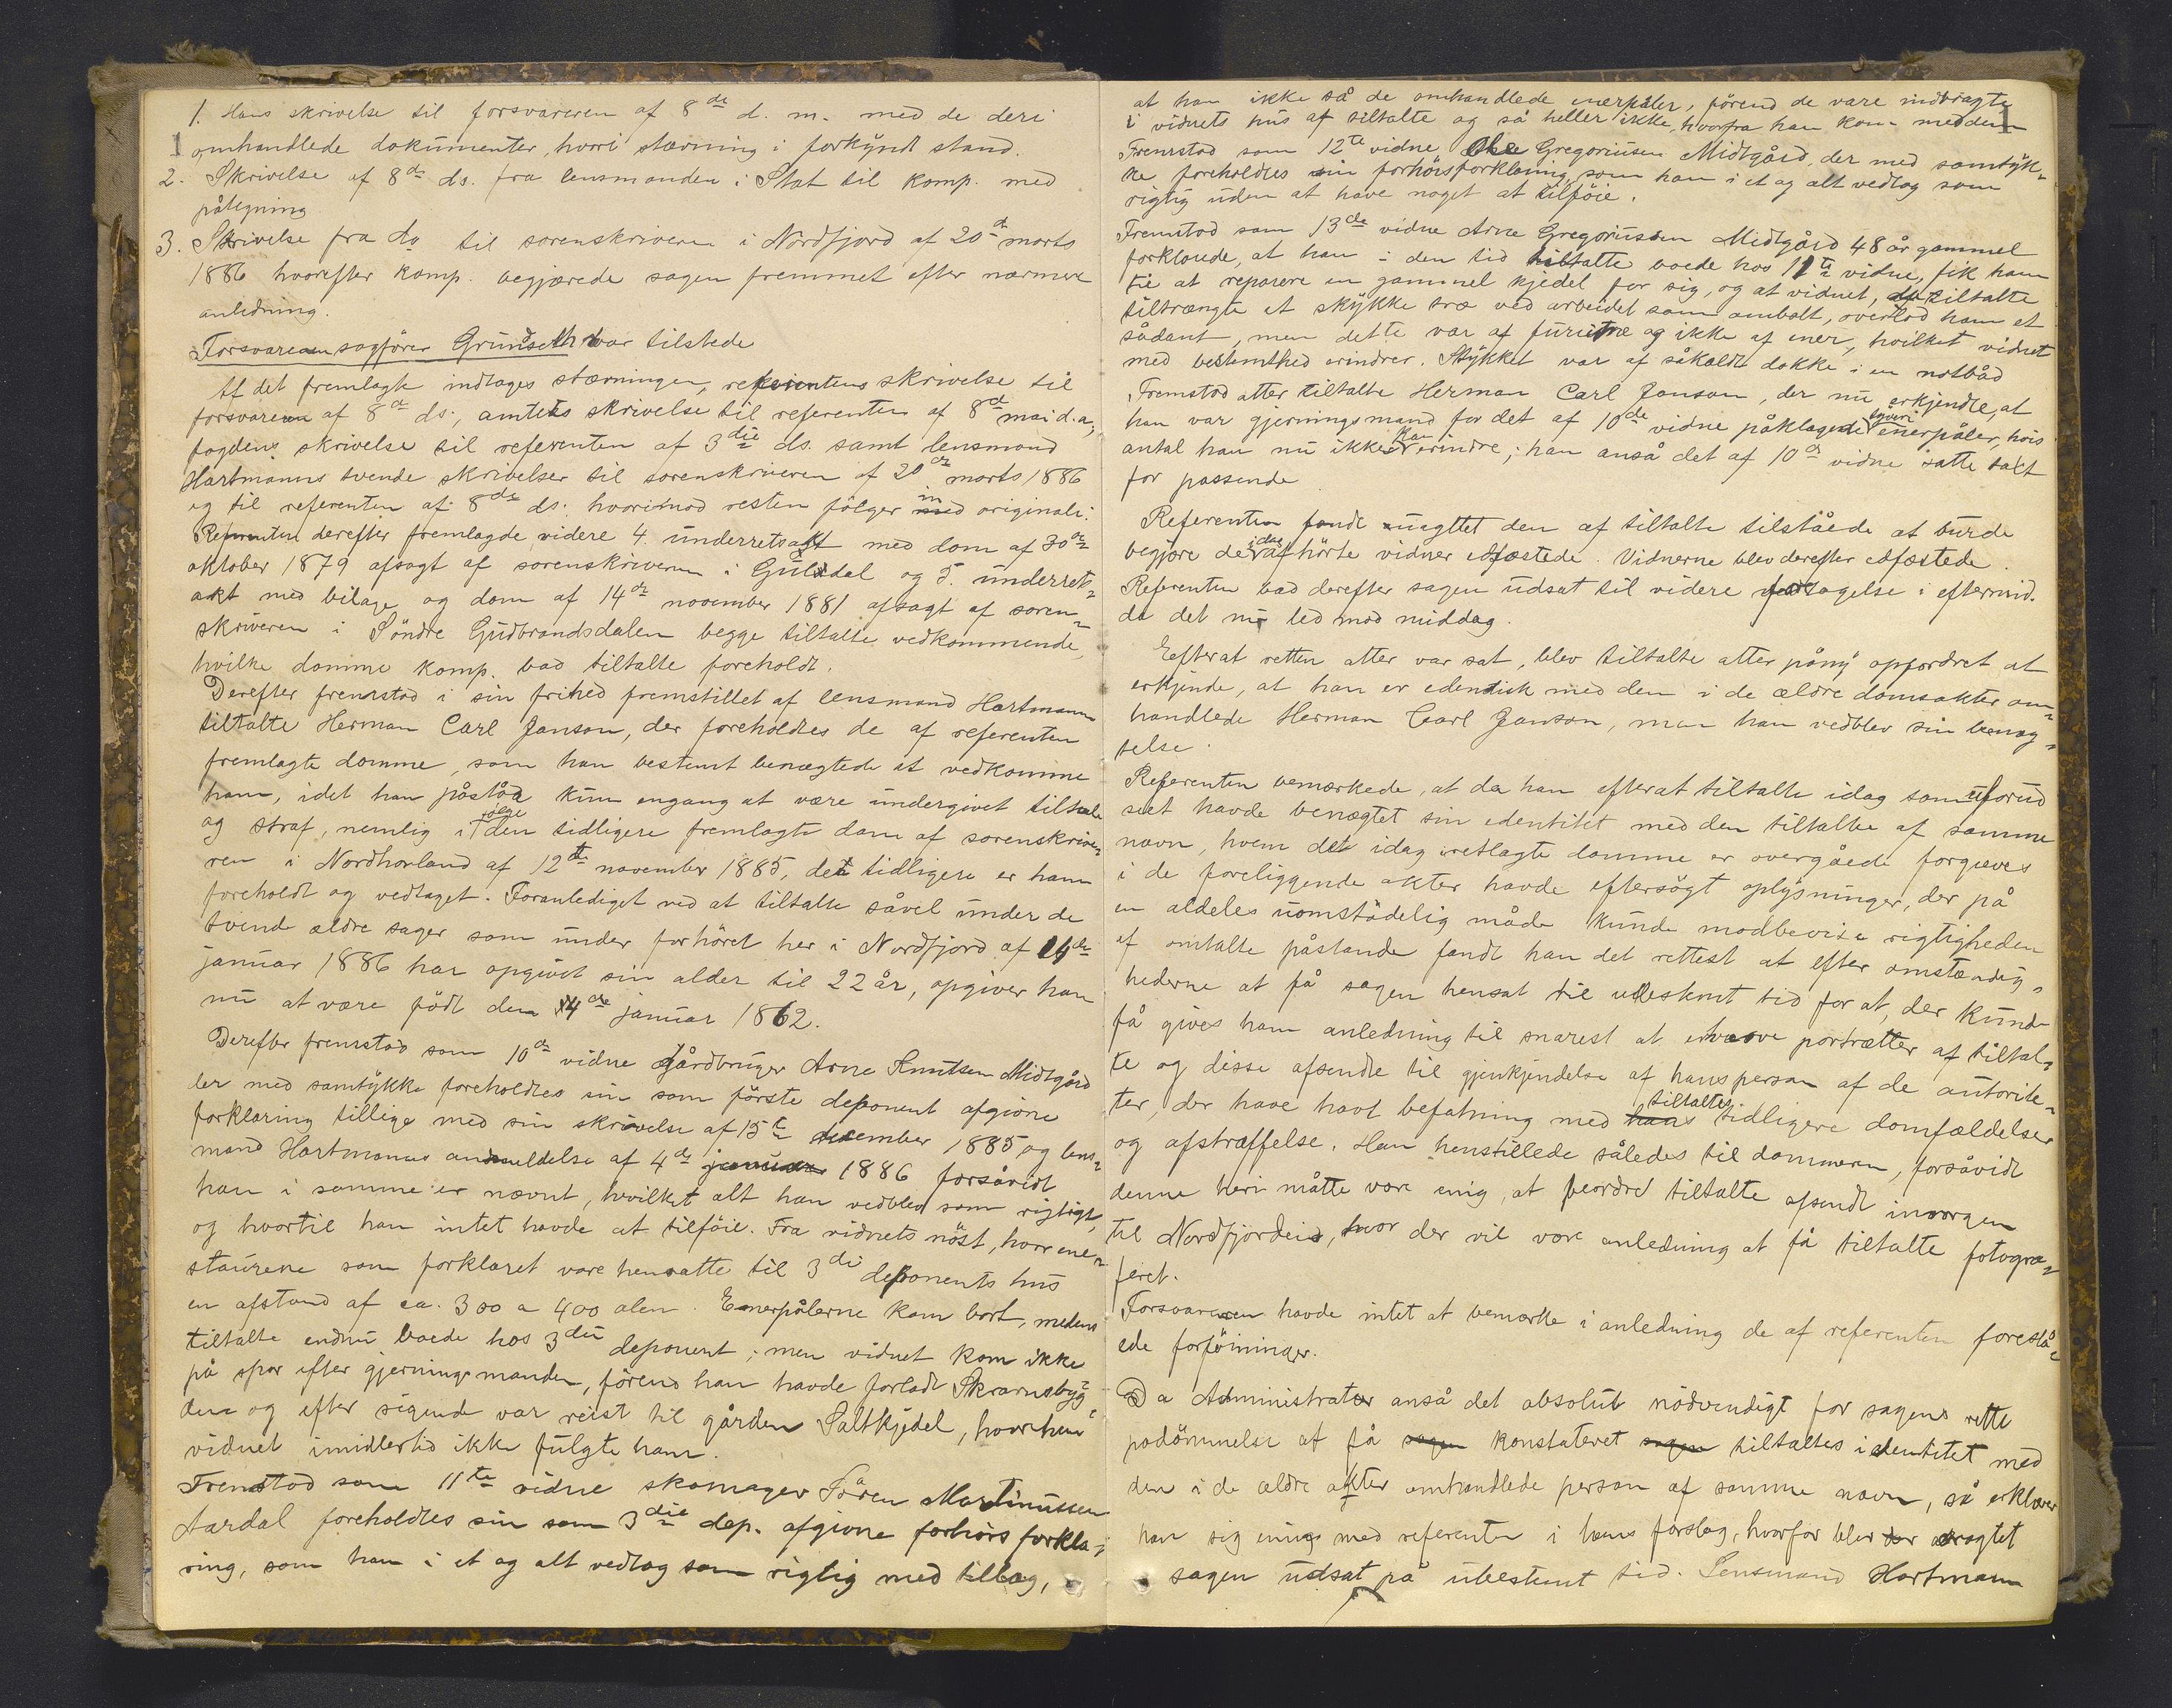 1. Hans skrivelse til forsvareren af 8de d. m. med de deri
1 omhandlede dokumenter, hvori stævning i forkyndt stand.
2. Skrivelse af 8de ds. fra lensmanden i Stat til komp. med
påtegning
3. Skrivelse fra do til sorenskriveren i Nordfjord af 20de marts
1886 hvorefter komp. begjærede sagen fremmet efter nærmere
anledning.
Forsvareren sagfører Grundseth var tilstede
Af det fremlagte indtages stævningen, referentens skrivelse til
forsvareren af 8de ds., amtets skrivelse til referenten af 8de mai d.a.,
fogdens skrivelse til referenten af 3die ds. samt lensmand
Hartmanns tvende skrivelser til sorenskriveren af 20de marts 1886
og til referenten af 8de ds. hvorimod resten følger in originali.
Referenten derefter fremlagde videre 4. underretsakt med dom af 30de
oktober 1879 afsagt af sorenskriveren i Guldal og 5. underrets
akt med bilage og dom af 14de november 1881 afsagt af soren-
skriveren i Söndre Gudbrandsdalen begge tiltalte vedkommende,
hvilke domme komp. bad tiltalte foreholdt.
Derefter fremstod i sin frihed fremstillet af lensmand Hartmann
tiltalte Herman Carl Janson, der foreholdtes de af referenten
fremlagte domme, som han bestemt benægtede at vedkomme
ham, idet han påstod kun engang at være undergivet tiltale
og straf, nemlig ifølge den tidligere fremlagte dom af sorenskrive-
ren i Nordhorland af 12te november 1885, det tidligere er ham
foreholdt og vedtaget. Foranlediget ved at tiltalte såvel under de
tvende ældre sager som under forhöret her i Nordfjord af 14de
januar 1886 har opgivet sin alder til 22 år, opgiver han
nu at være födt den 14de januar 1862.
Derefter fremstod som 10de vidne gårdbruger Arne Knutsen Midtgård
der med samtykke foreholdtes sin som förste deponent afgivne
forklaring tillige med sin skrivelse af 15te december 1885 og lens-
mand Hartmanns anmeldelse af 4de januar 1886 forsåvidt
han i samme er nævnt, hvilket alt han vedblev som rigtigt,
og hvortil han intet havde at tilföie. Fra vidnets nöst, hvor ener-
staurene som forklaret vare hensatte til 3die deponents hus
en afstand af ca. 300 a 400 alen. Enerpålerne kom bort, medens
tiltalte endnu boede hos 3die deponent; men vidnet kom ikke
på spor efter gjerningsmanden, förend han havde forladt Skrarusbyg-
den og efter sigende var reist til gården Saltkjedel, hvorhen
vidnet imidlertid ikke fulgte ham.
Fremstod som 11te vidne skomager Sören Martinussen
Aardal foreholdtes sin som 3die dep. afgivne forhörsforkla-
ring, som han i et og alt vedtog som rigtig med tillæg,
at han ikke så de omhandlede enerpåler, förend de vare indbragte 1
i vidnets hus af tiltalte og så heller ikke, hvorfra han kom med dem
Fremstod som 12te vidne Ole Gregoriusen Midtgård, der med samtyk-
ke foreholdtes sin forhörsforklaring, som han i et og alt vedtog som
rigtig uden at have noget at tilföie.
Fremstod som 13de vidne Arne Gregoriussen Midtgård 48 år gammel
forklarede, at han i den tid tiltalte boede hos 11te vidne, fik ham
til at reparere en gammel kjedel for sig, og at vidnet, da tiltalte
tiltrængte et stykke træ ved arbeidet som ambolt, overlod ham et
sådant, men dette var af furutræ og ikke af ener, hvilket vidnet
med bestemthed erindrer. Stykket var af såkaldt dokke i en notbåd
Fremstod atter tiltalte Herman Carl Janson, der nu erkjendte, at
han var gjerningsmand for det af 10de vidne påklagede tyveri enerpåler, hvis
antal han nu ikke kan erindre; han anså det af 10de vidne satte takt
for passende
Referenten fandt uagttet den af tiltalte tilståede at burde
begjære de idag afhörte vidner edfæstede. Vidnerne blev derefter edfæstede.
Referenten bad derefter sagen udsat til videre foretagelse i eftermid.
da det nu led mod middag.
Efterat retten atter var sat, blev tiltalte atter påny opfordret at
erkjende, at han er edentisk med den i de ældre domsakter om-
handlede Herman Carl Janson, men han vedblev sin benæg-
telse.
Referenten bemærkede, at da han efterat tiltalte idag som uforud
seet havde benægtet sin edentitet med den tiltalte af samme
navn, hvem de idag iretlagte domme er overgåede forgjæves
i de foreliggende akter havde eftersögt oplysninger, der på
en aldeles uomstödelig måde kunde modbevise rigtigheden
af omtalte påstande fandt han det rettest at efter omstændig-
hederne at få sagen hensat til ubestemt tid for at, der kunde
få gives ham anledning til snarest at erhverve portrætter af tiltal-
te og disse afsendte til gjenkjendelse af hans person af de autorite-
ter, der have havt befatning med hans tiltaltes tidligere domfældelser
og afstraffelse. Han henstillede således til dommeren, forsåvidt
denne heri måtte være enig, at beordre tiltalte afsendt imorgen
til Nordfjordeid, hvor der vil være anledning at få tiltalte fotogra-
feret.
Forsvareren havde intet at bemærke i anledning de af referenten foreslå-
ede forföininger.
Da Administrator anså det absolut nödvendigt for sagens rette
pådömmelse at få sagen konstateret sagen tiltaltes identitet med
den i de ældre akter omhandlede person af samme navn, så erklærer
han sig enig med referenten i hans forslag, hvorfor blev der eragtet
sagen udsat på ubestemt tid. Lensmand Hartmann